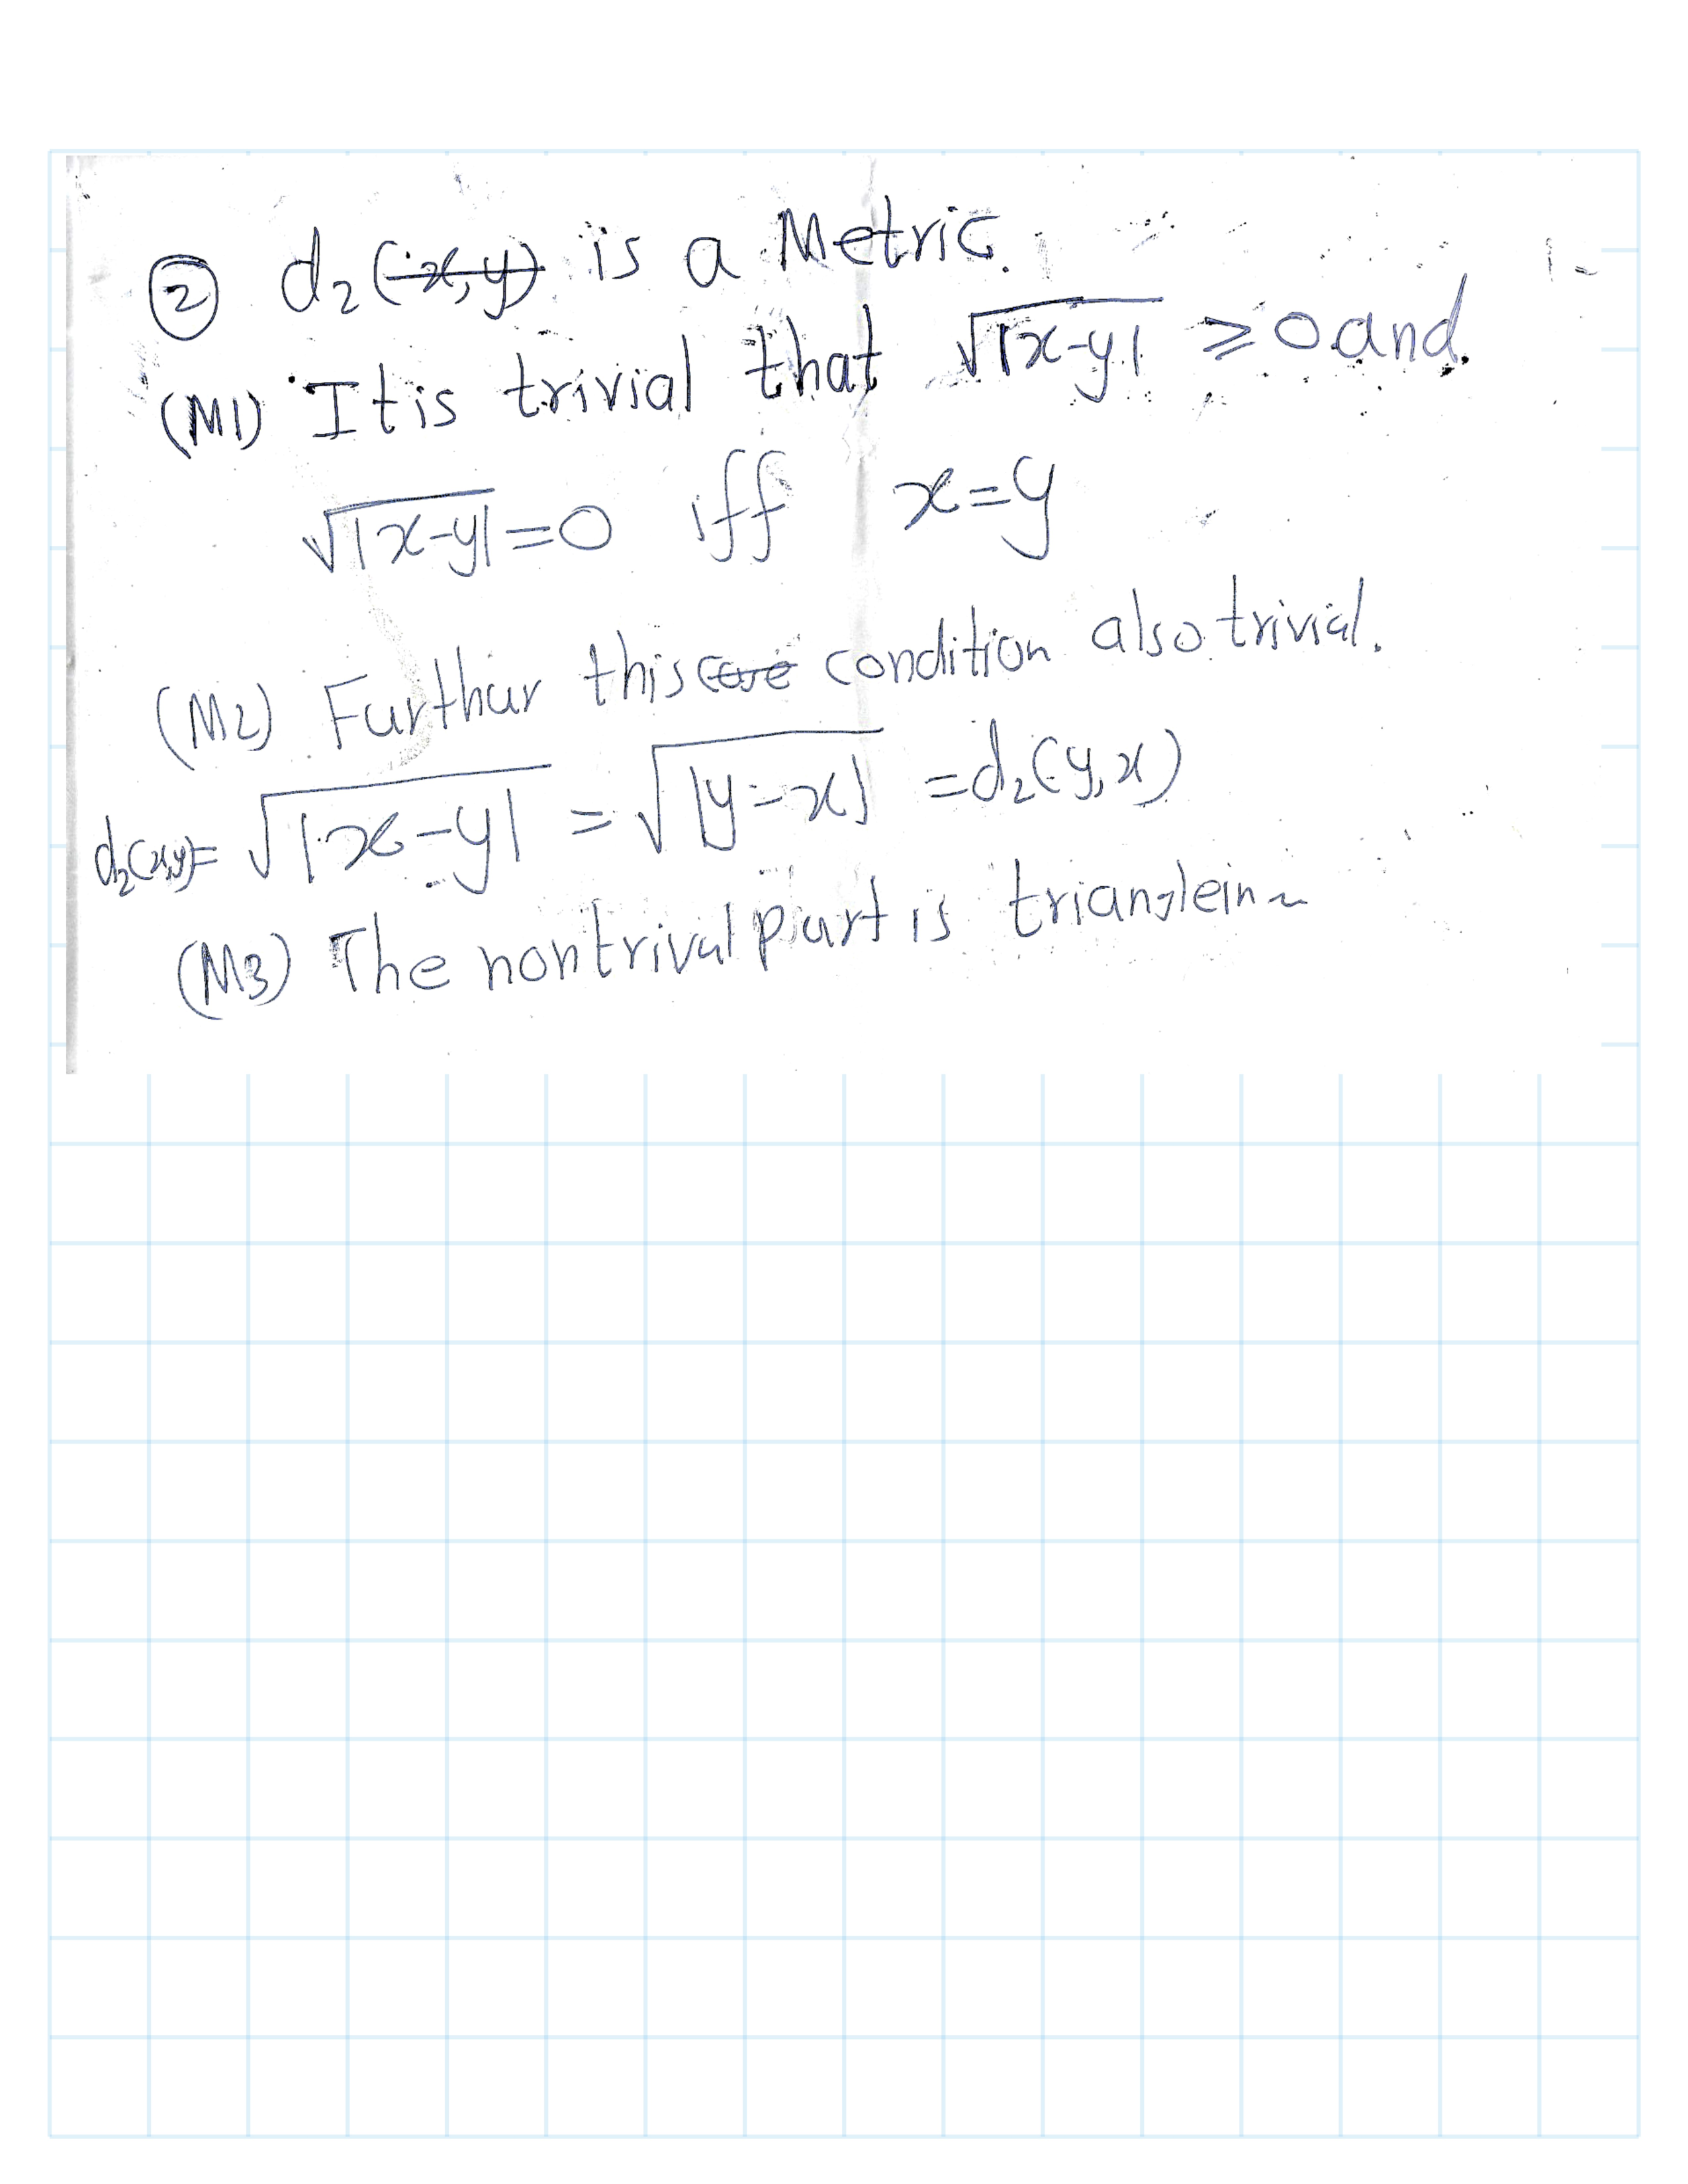 ② d₂(x,y) is a Metric.
(M1) It is trivial that √|x-y| ≥ 0 and.
√|x-y| = 0 iff x=y
(M2) Furthur this case condition also trivial.
d₂(x,y)= √|x-y| = √|y-x| = d₂(y,x)
(M3) The nontrival part is triangle in